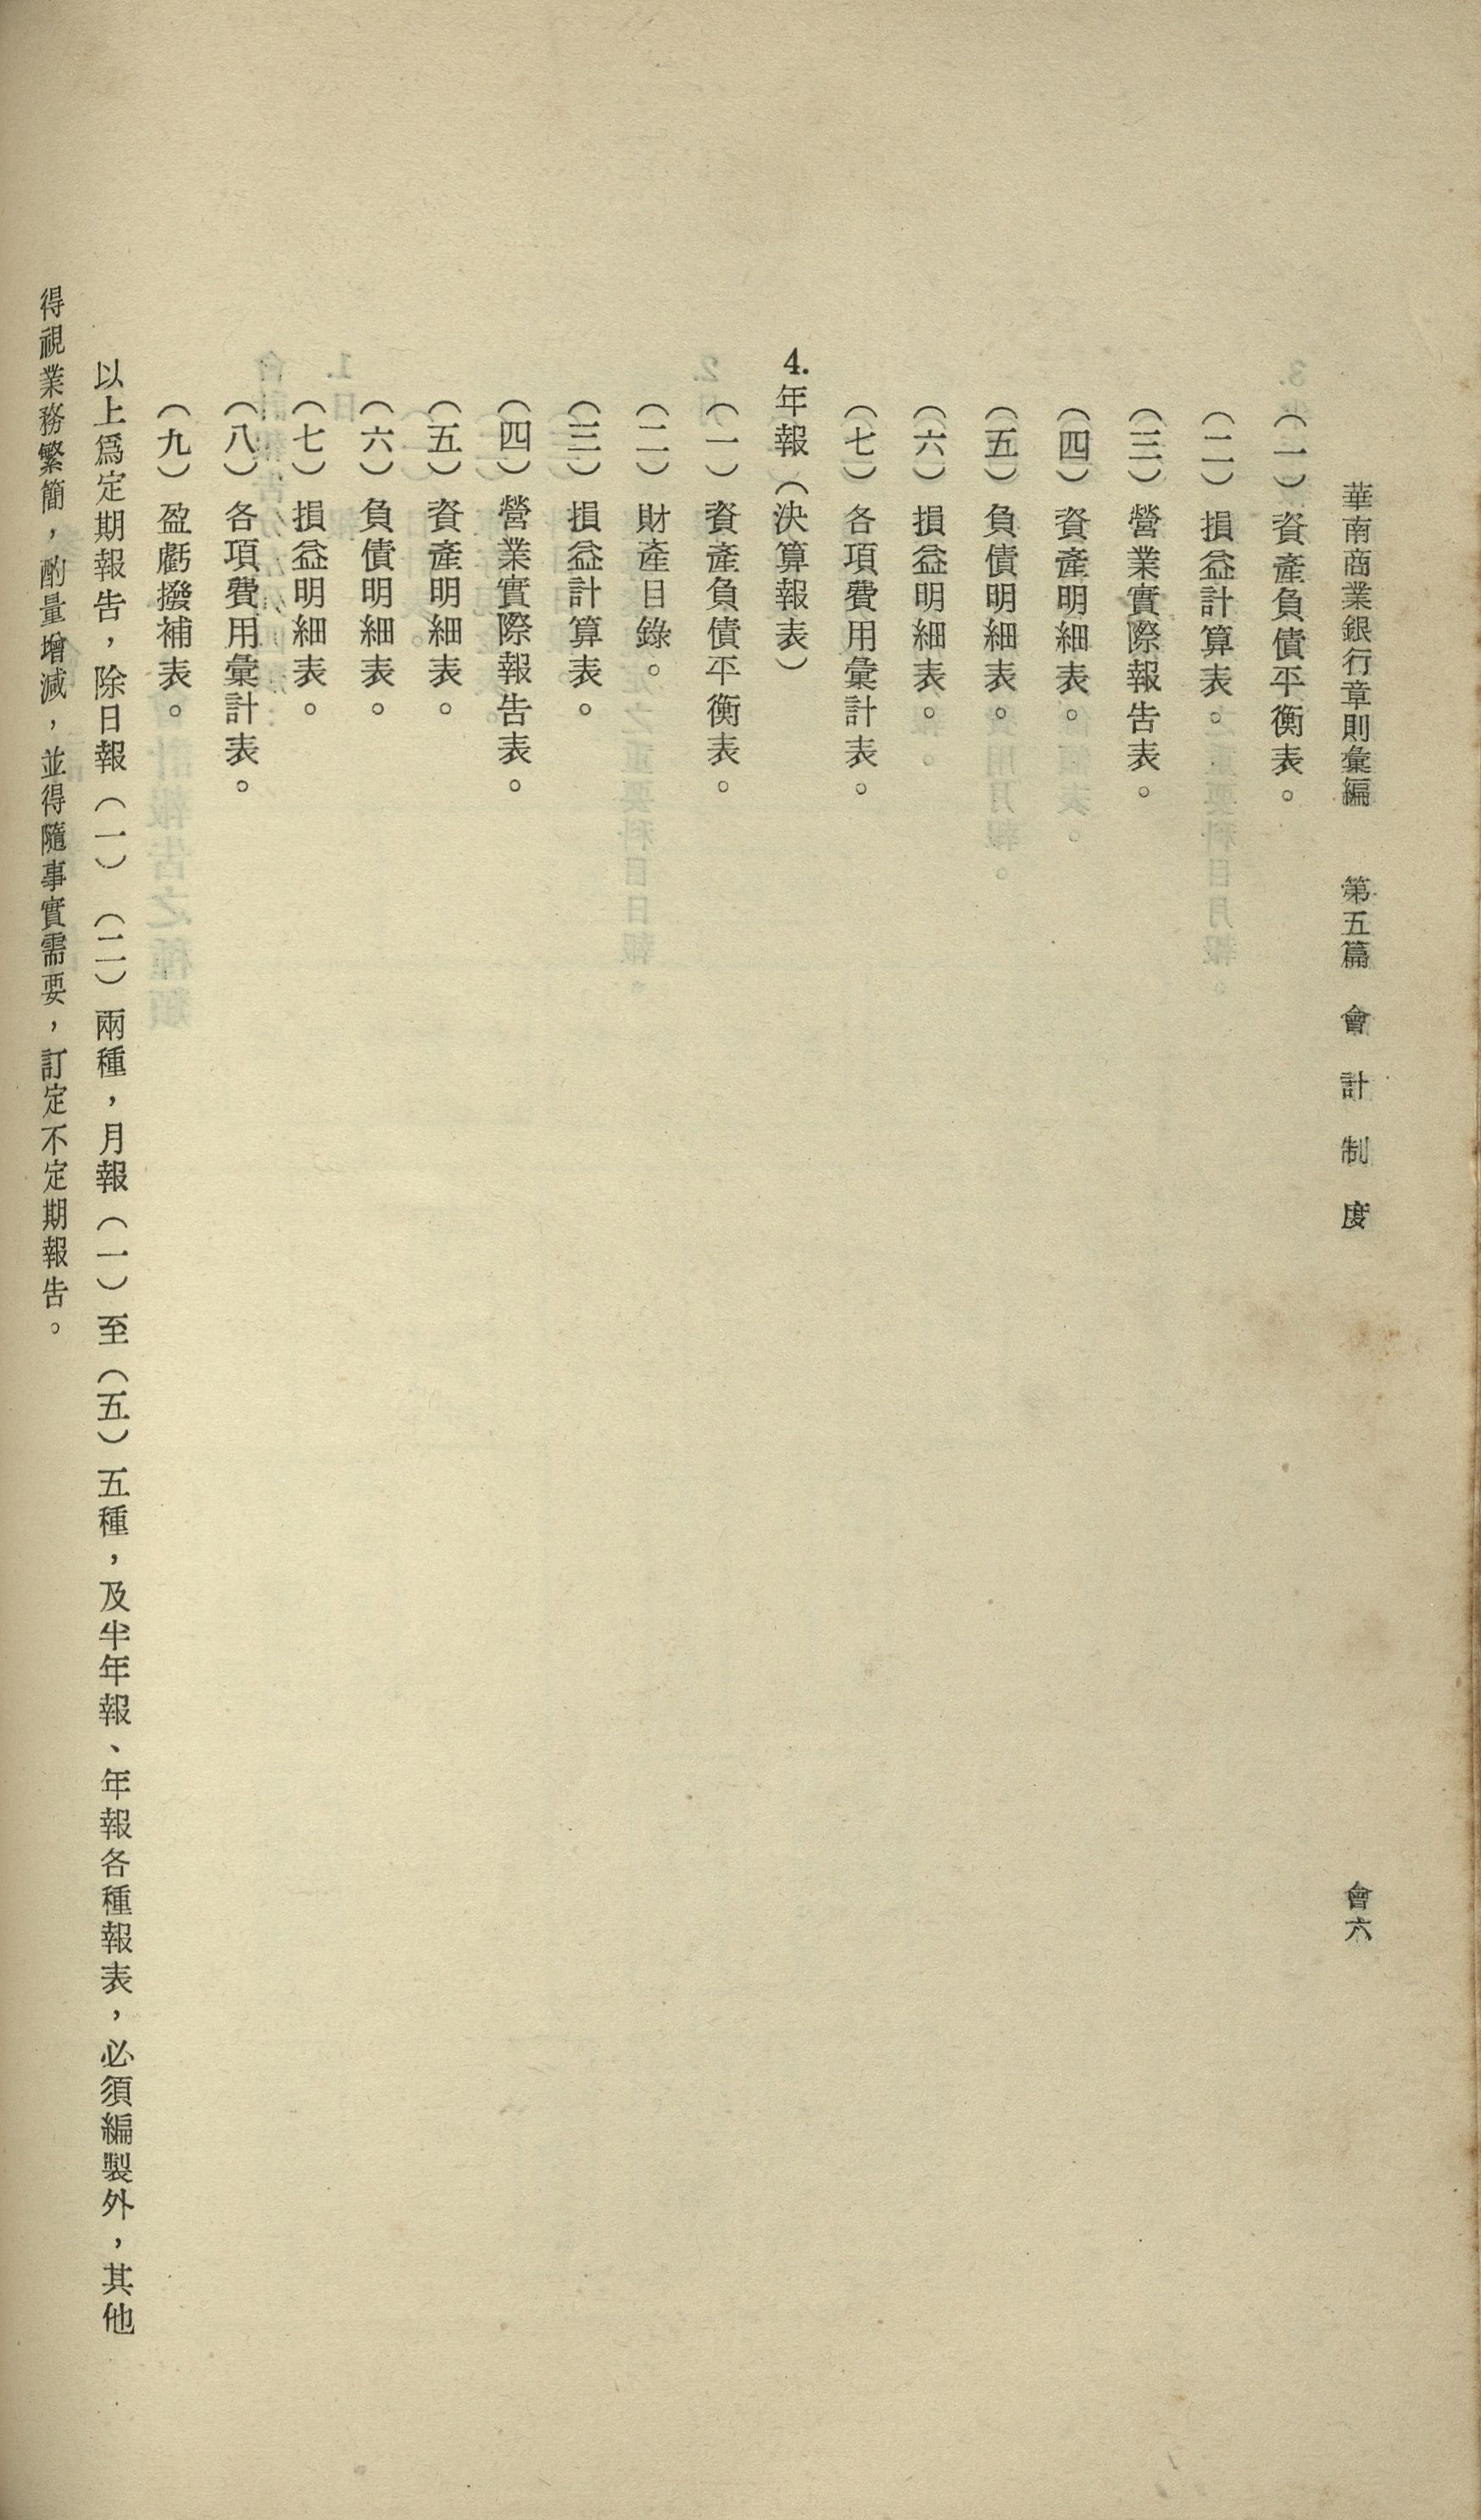 華南商業銀行章則彙編　第五篇　會計制度　會六
（一）資產負債平衡表。
（二）損益計算表。
（三）營業實際報告表。
（四）資產明細表。
（五）負債明細表。
（六）損益明細表。
（七）各項費用彙計表。
4.年報（決算報表）
（一）資產負債平衡表。
（二）財產目錄。
（三）損益計算表。
（四）營業實際報告表。
（五）資產明細表。
（六）負債明細表。
（七）損益明細表。
（八）各項費用彙計表。
（九）盈虧撥補表。
以上爲定期報告，除日報（一）（二）兩種，月報（一）至（五）五種，及半年報、年報各種報表，必須編製外，其他
得視業務繁簡，酌量增減，並得隨事實需要，訂定不定期報告。